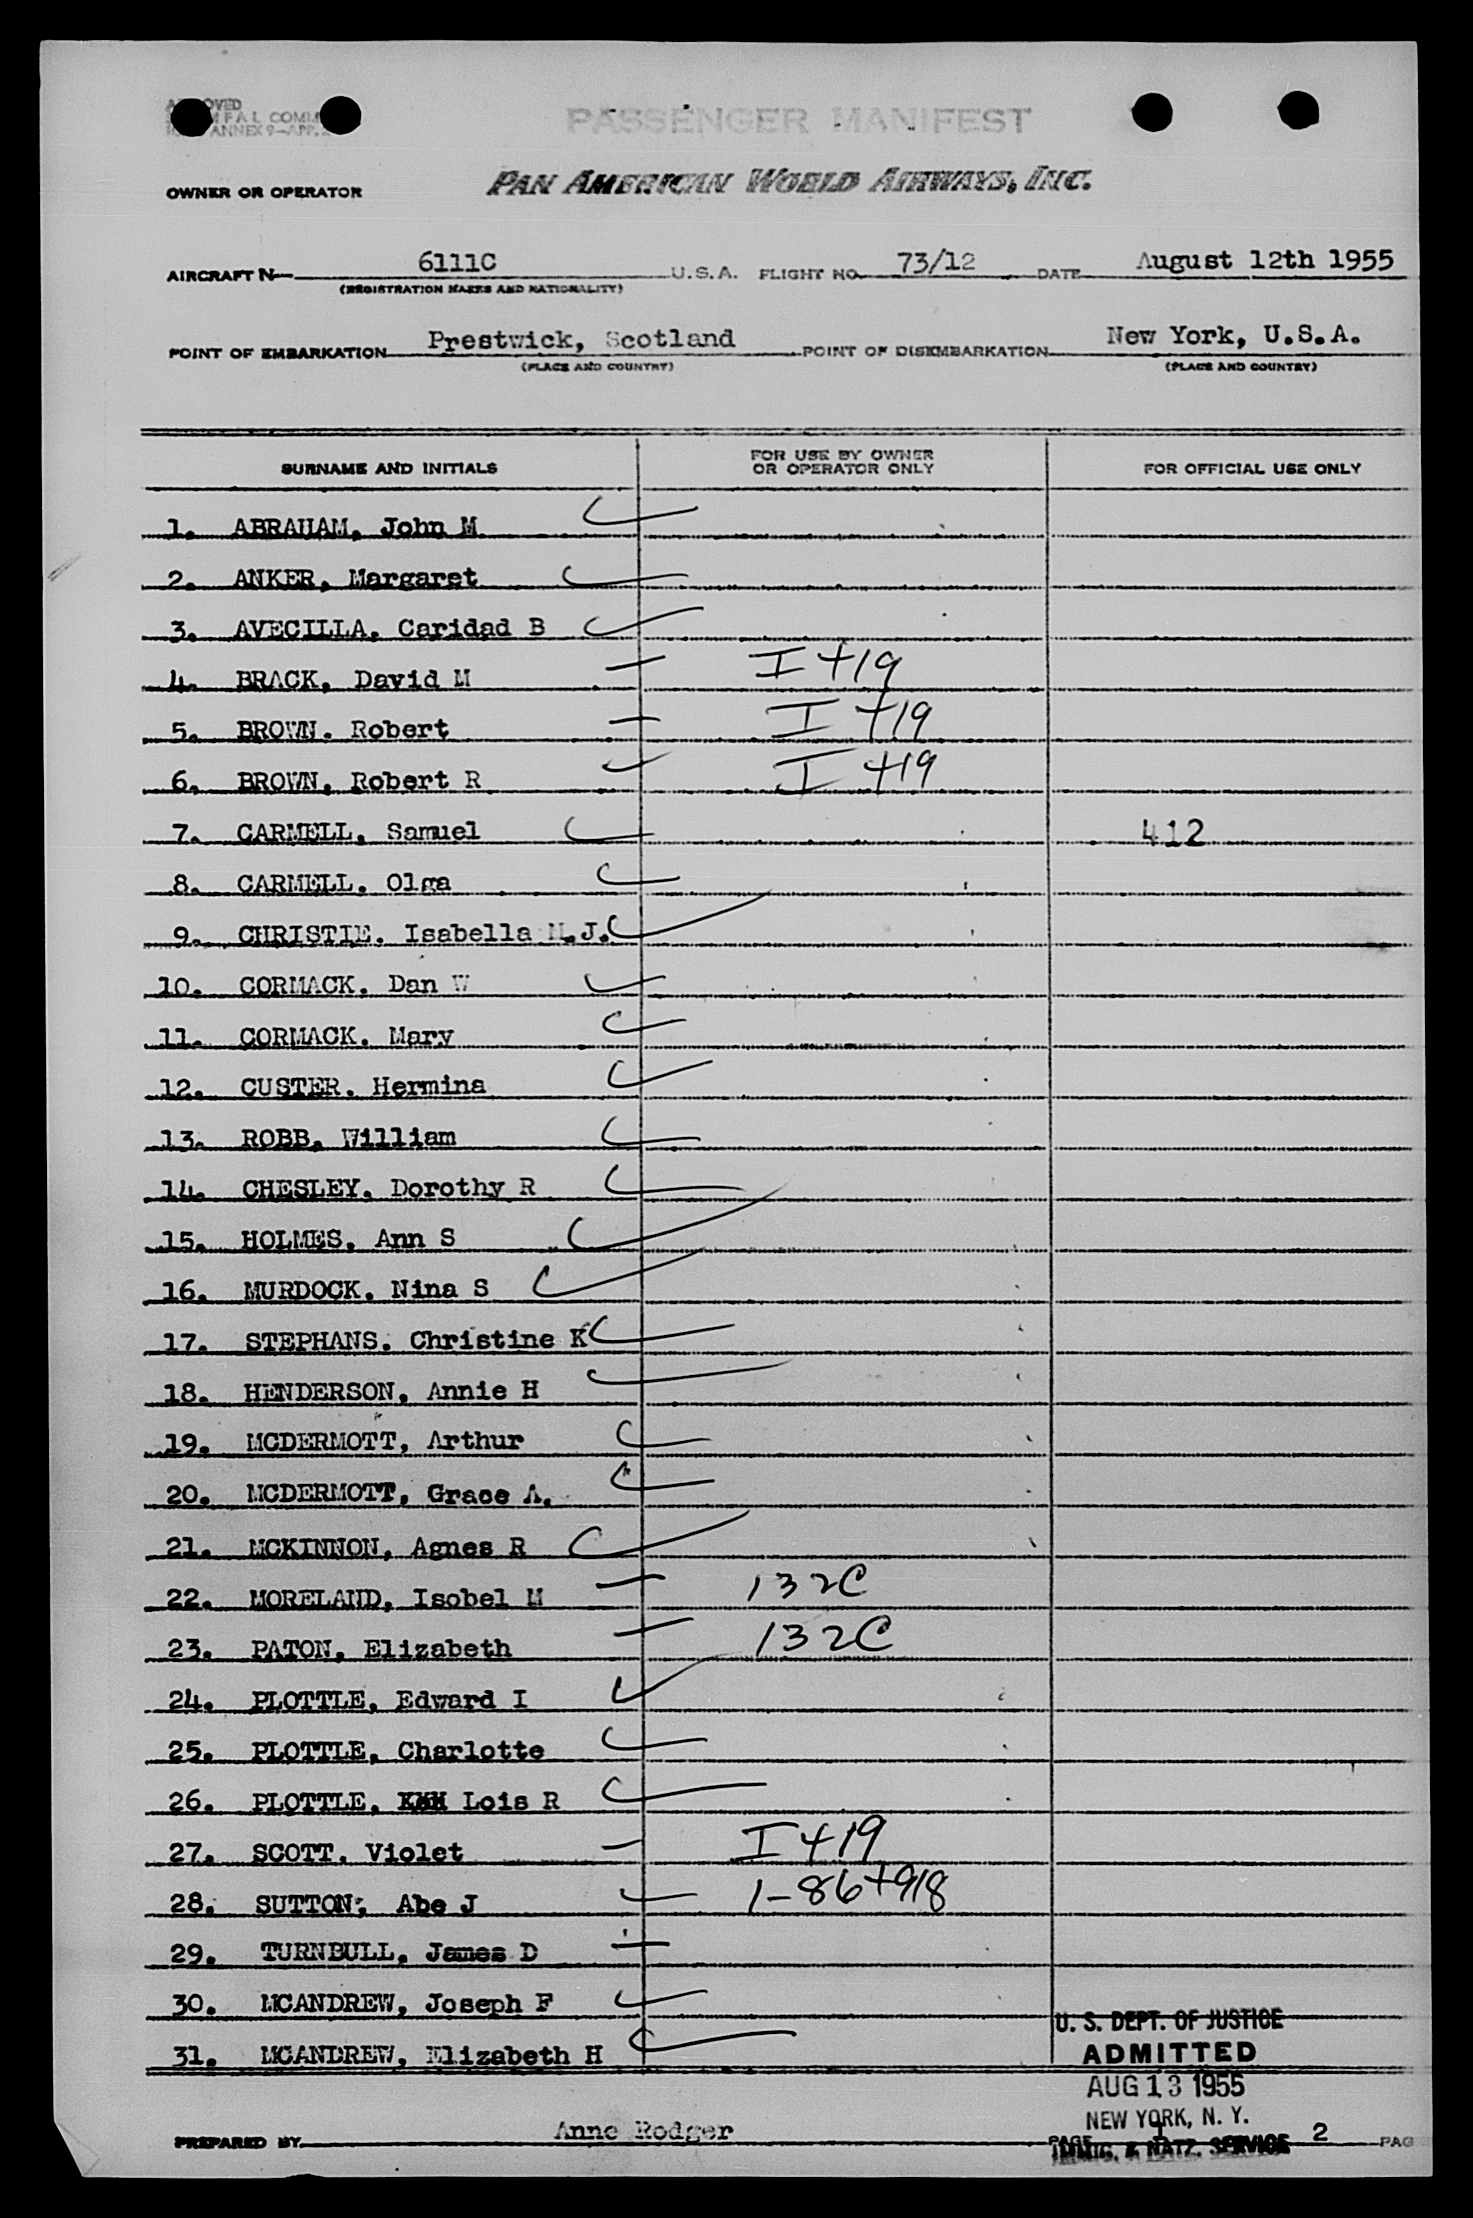 PASSENGER MANIFEST
OWNER OR OPERATOR PAN AMERICAN WORLD AIRWAYS, INC.
AIRCRAFT N 6111C U.S.A. FLIGHT NO. 73/12 DATE August 12th 1955
(REGISTRATION MARKS AND NATIONALITY)
POINT OF EMBARKATION Prestwick, Scotland POINT OF DISEMBARKATION New York, U.S.A.
(PLACE AND COUNTRY) (PLACE AND COUNTRY)
SURNAME AND INITIALS FOR USE BY OWNER OR OPERATOR ONLY FOR OFFICIAL USE ONLY
1. ABRAHAM, John M
2. ANKER, Margaret
3. AVECILLA, Caridad B
4. BRACK, David M I 419
5. BROWN. Robert I 419
6. BROWN, Robert R I 419
7. CARMELL, Samuel 412
8. CARMELL. Olga
9. CHRISTIE. Isabella M.J.
10. CORMACK. Dan W
11. CORMACK. Mary
12. CUSTER. Hermina
13. ROBB, William
14. CHESLEY, Dorothy R
15. HOLMES. Ann S
16. MURDOCK. Nina S
17. STEPHANS. Christine K
18. HENDERSON, Annie H
19. MCDERMOTT, Arthur
20. MCDERMOTT, Grace A.
21. MCKINNON, Agnes R
22. MORELAND, Isobel M 132C
23. PATON, Elizabeth 132C
24. PLOTTLE, Edward I
25. PLOTTLE, Charlotte
26. PLOTTLE, Lois R
27. SCOTT. Violet I 419
28. SUTTON, Abe J 1-86+918
29. TURNBULL, James D
30. MCANDREW, Joseph F
31. MCANDREW, Elizabeth H
U. S. DEPT. OF JUSTICE
ADMITTED
AUG 13 1955
NEW YORK, N. Y.
IMMIG. & NATZ. SERVICE
PREPARED BY Anne Rodger PAGE 2 PAG